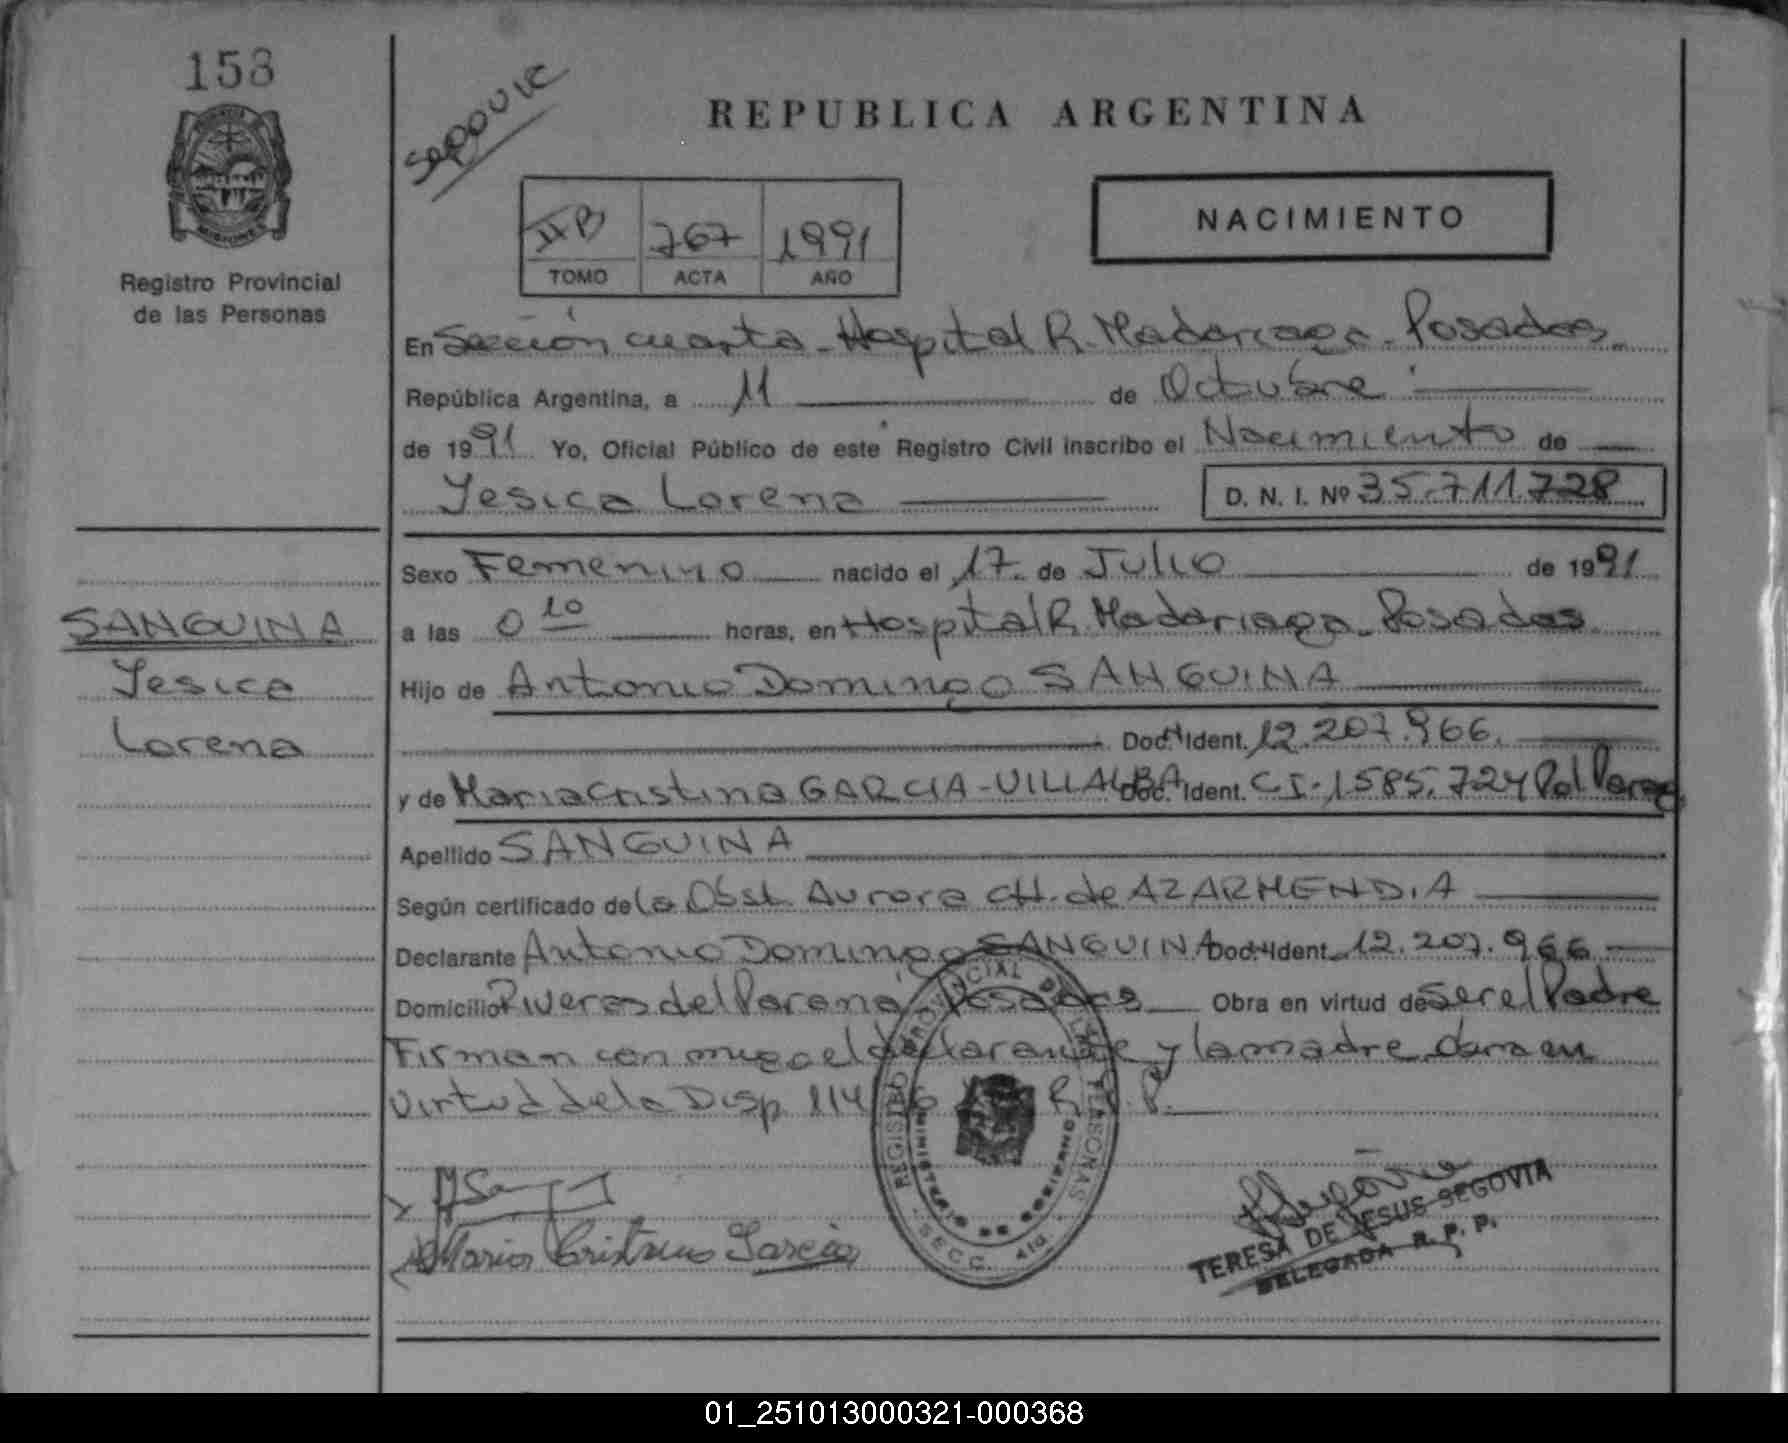 158
Registro Provincial
de las Personas
SANGUINA
Yesica
Lorena
REPUBLICA ARGENTINA
II B 767 1991
TOMO ACTA AÑO
NACIMIENTO
En Sección cuarta - Hospital R. Madariaga - Posadas
República Argentina, a 11 de Octubre
de 1991 Yo, Oficial Público de este Registro Civil inscribo el Nacimiento de
Yesica Lorena D. N. I. Nº 35.711.728
Sexo Femenino nacido el 17 de Julio de 1991
a las 0 10 horas, en Hospital R. Madariaga - Posadas
Hijo de Antonio Domingo SANGUINA
Doc. Ident. 12.207.966
y de Maria Cristina GARCIA - VILLALBA Doc. Ident. CI. 1585.724 Pol Parag
Apellido SANGUINA
Según certificado de la Obst. Aurora CH. de AZARMENDIA
Declarante Antonio Domingo SANGUINA Doc. Ident. 12.207.966
Domicilio Riveras del Paraná Posadas Obra en virtud de ser el Padre
Firman con migo el declarante y la madre
virtud de la Disp. 114 R. P.
REGISTRO PROVINCIAL DE LAS PERSONAS
SECC. 4ta.
Maria Cristina Garcia
TERESA DE JESUS SEGOVIA
DELEGADA R. P. P.
01_251013000321-000368